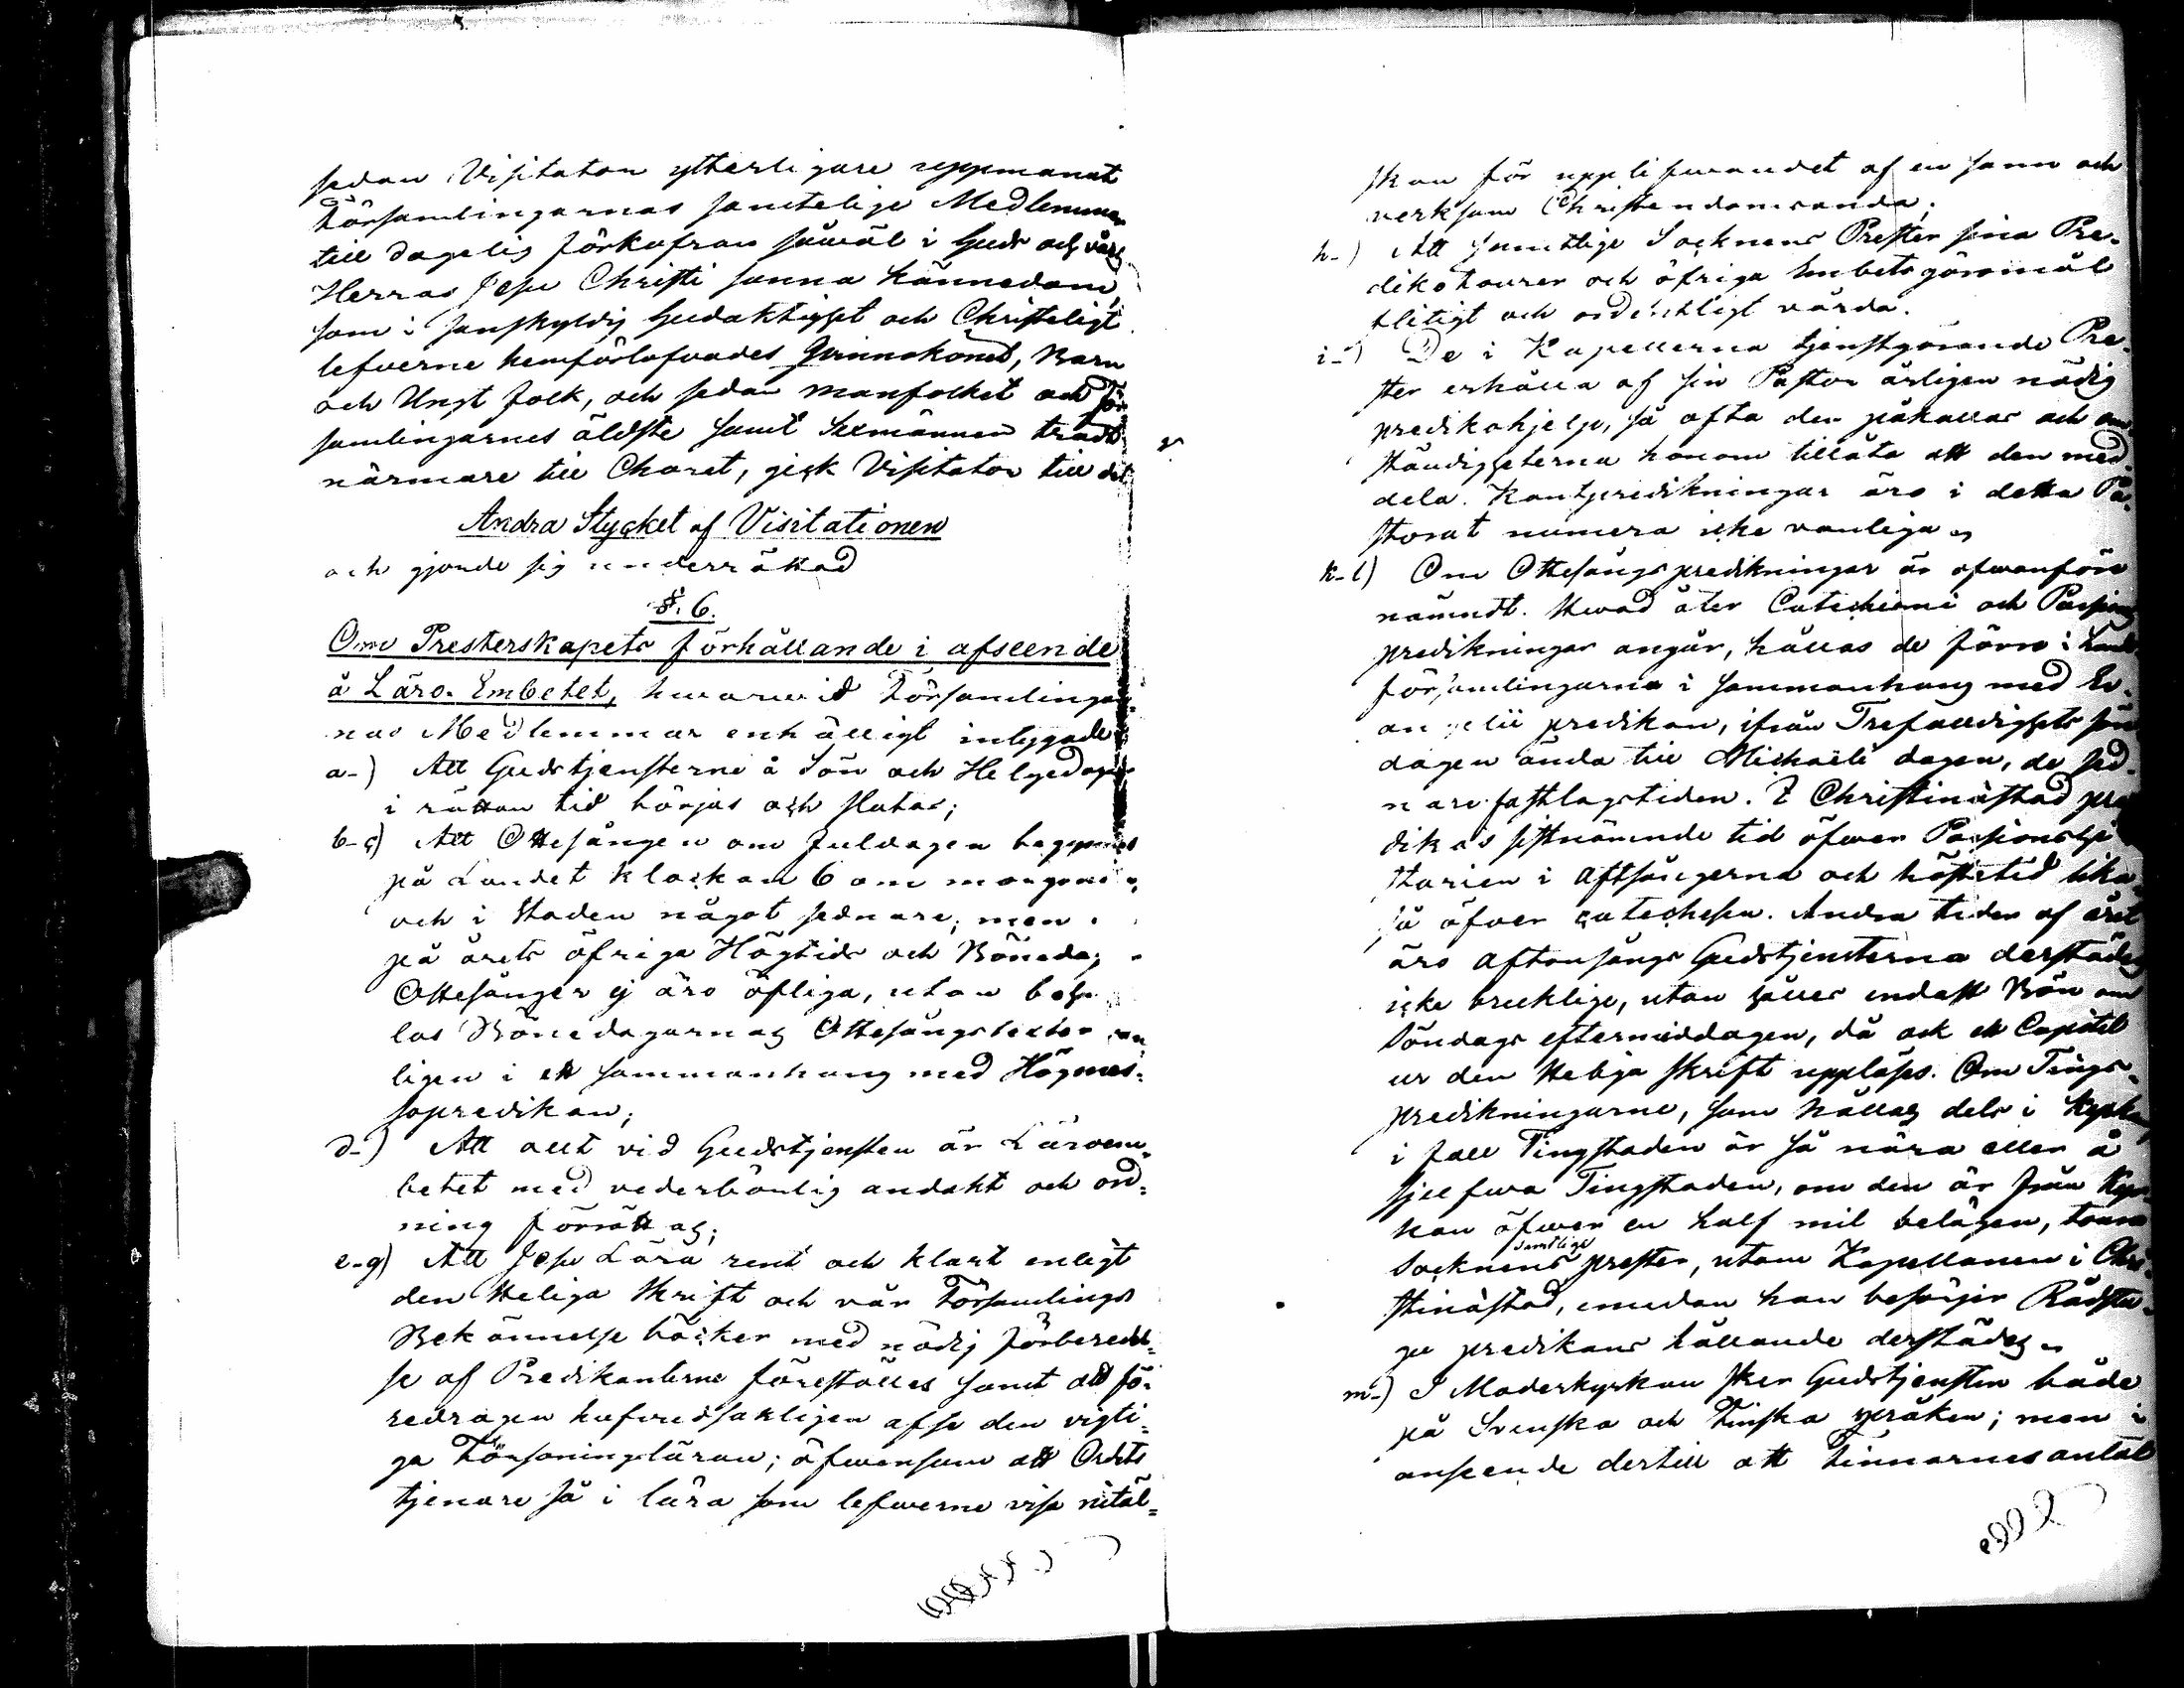 sedan Visitaton ytterligare uppmanat
Församlingarnas samtelige Medlemmar
till dagelig förkofran såwäl i Guds och vårs
Herras Jesu Christi sanna kännedom,
som i sanskyldig Gudaktighet och Christeligt
lefverne hemförlofvades Qvinnokönet, Barn
och Ungt folk, och sedan manfolket och för-
samlingarnes äldste samt Sexmännen trädt
närmare till Choret, gick Visitator till det
Andra Stycket af Visitationen
och gjorde sig underrättad
§. 6.
Om Presterskapets förhållande i afseende
å Läro-Embetet, hwarwid Församlingar-
nas Medlemmar enhälligt intygade
a-) Att Gudstjensterne å Sön och Helgedagar
i rättan tid börjas och slutas;
b-c) Att Ottesången om Juldagen begynnes
på Landet klockan 6 om morgonen
och i Staden något sednare; men
på årets öfriga Högtids och Bönedag
Ottesånger ej äro öfliga, utan
las Bönedagarnas Ottesångstexter
ligen i ett sammanhang med Högmes-
sopredikan;
d-) Att allt vid Gudstjensten är Läroem-
betet med vederbörlig andakt och ord-
ning förrättas;
e-g) Att Jesu Lära rent och klart enligt
den Heliga Skrift och vår Församlings
Bekännelse böcker med nödig förberedel-
se af Predikanterne föreställes samt att fö-
redragen hufvudsakligen afse den vigti-
ga Försoningsläran; äfwensom att Ordets
tjenare så i lära som lefwerne visa nitäl-
skan för upplifwandet af en sann och
verksam Christendomsanda;
h-) Att samtlige Socknens Prester sina Pre-
dikotourer och öfriga Embetsgöromål
flitigt och ordentligt vårda.
i-) De i Kapellerna tjenstgörande Pre-
ster erhålla af sin Pastor årligen nödig
predikohjelp, så ofta den påkallas och om-
ständigheterna honom tillåta att den med-
dela. Kantpredikningar äro i detta Pa-
storat numera icke vanliga.
k-l) Om Ottesångspredikningar är ofwanföre
nämndt. Hwad åter Catechismi och Passions
predikningar angår, hållas de förra i Lands
församlingarna i sammanhang med Ev-
angelii predikan, ifrån Trefaldighets sön-
dagen ända till Michaëli dagen, de sed-
nare fastlagstiden. I Christinæstad pre-
dikas sistnämnde tid öfwer Passionshi-
storien i Aftsångerna och hösttid lika-
så öfver Catechesen. Andra tider af året
äro aftonsångs Gudstjensterna derstädes
icke brukliga, utan hålles endast Bön om
Söndags eftermiddagen, då ock ett Capitel
ur den Heliga Skrift uppläses. Om Tings-
predikningarne, som hållas dels i Kyrkan
i fall Tingstaden är så nära eller å
sjelfwa Tingstaden, om den är från Kyr-
kan öfwer en half mil belägen, toura
samtlige
Socknens prester, utom Kapellanen i Chri-
stinæstad, emedan han besörjer Rådstu-
gu predikans hållande derstädes.
m-) I Moderkyrkan sker Gudstjensten både
på Svenska och Finska språken; men i
anseende dertill att Finnarnes antal